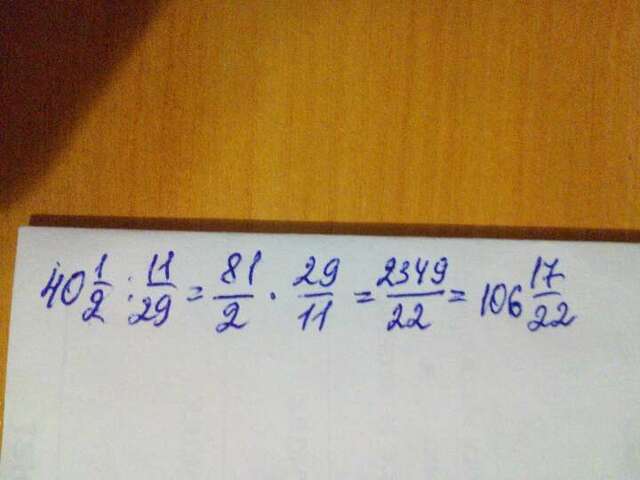 40 1/2 : 11/29 = 81/2 · 29/11 = 2349/22 = 106 17/22